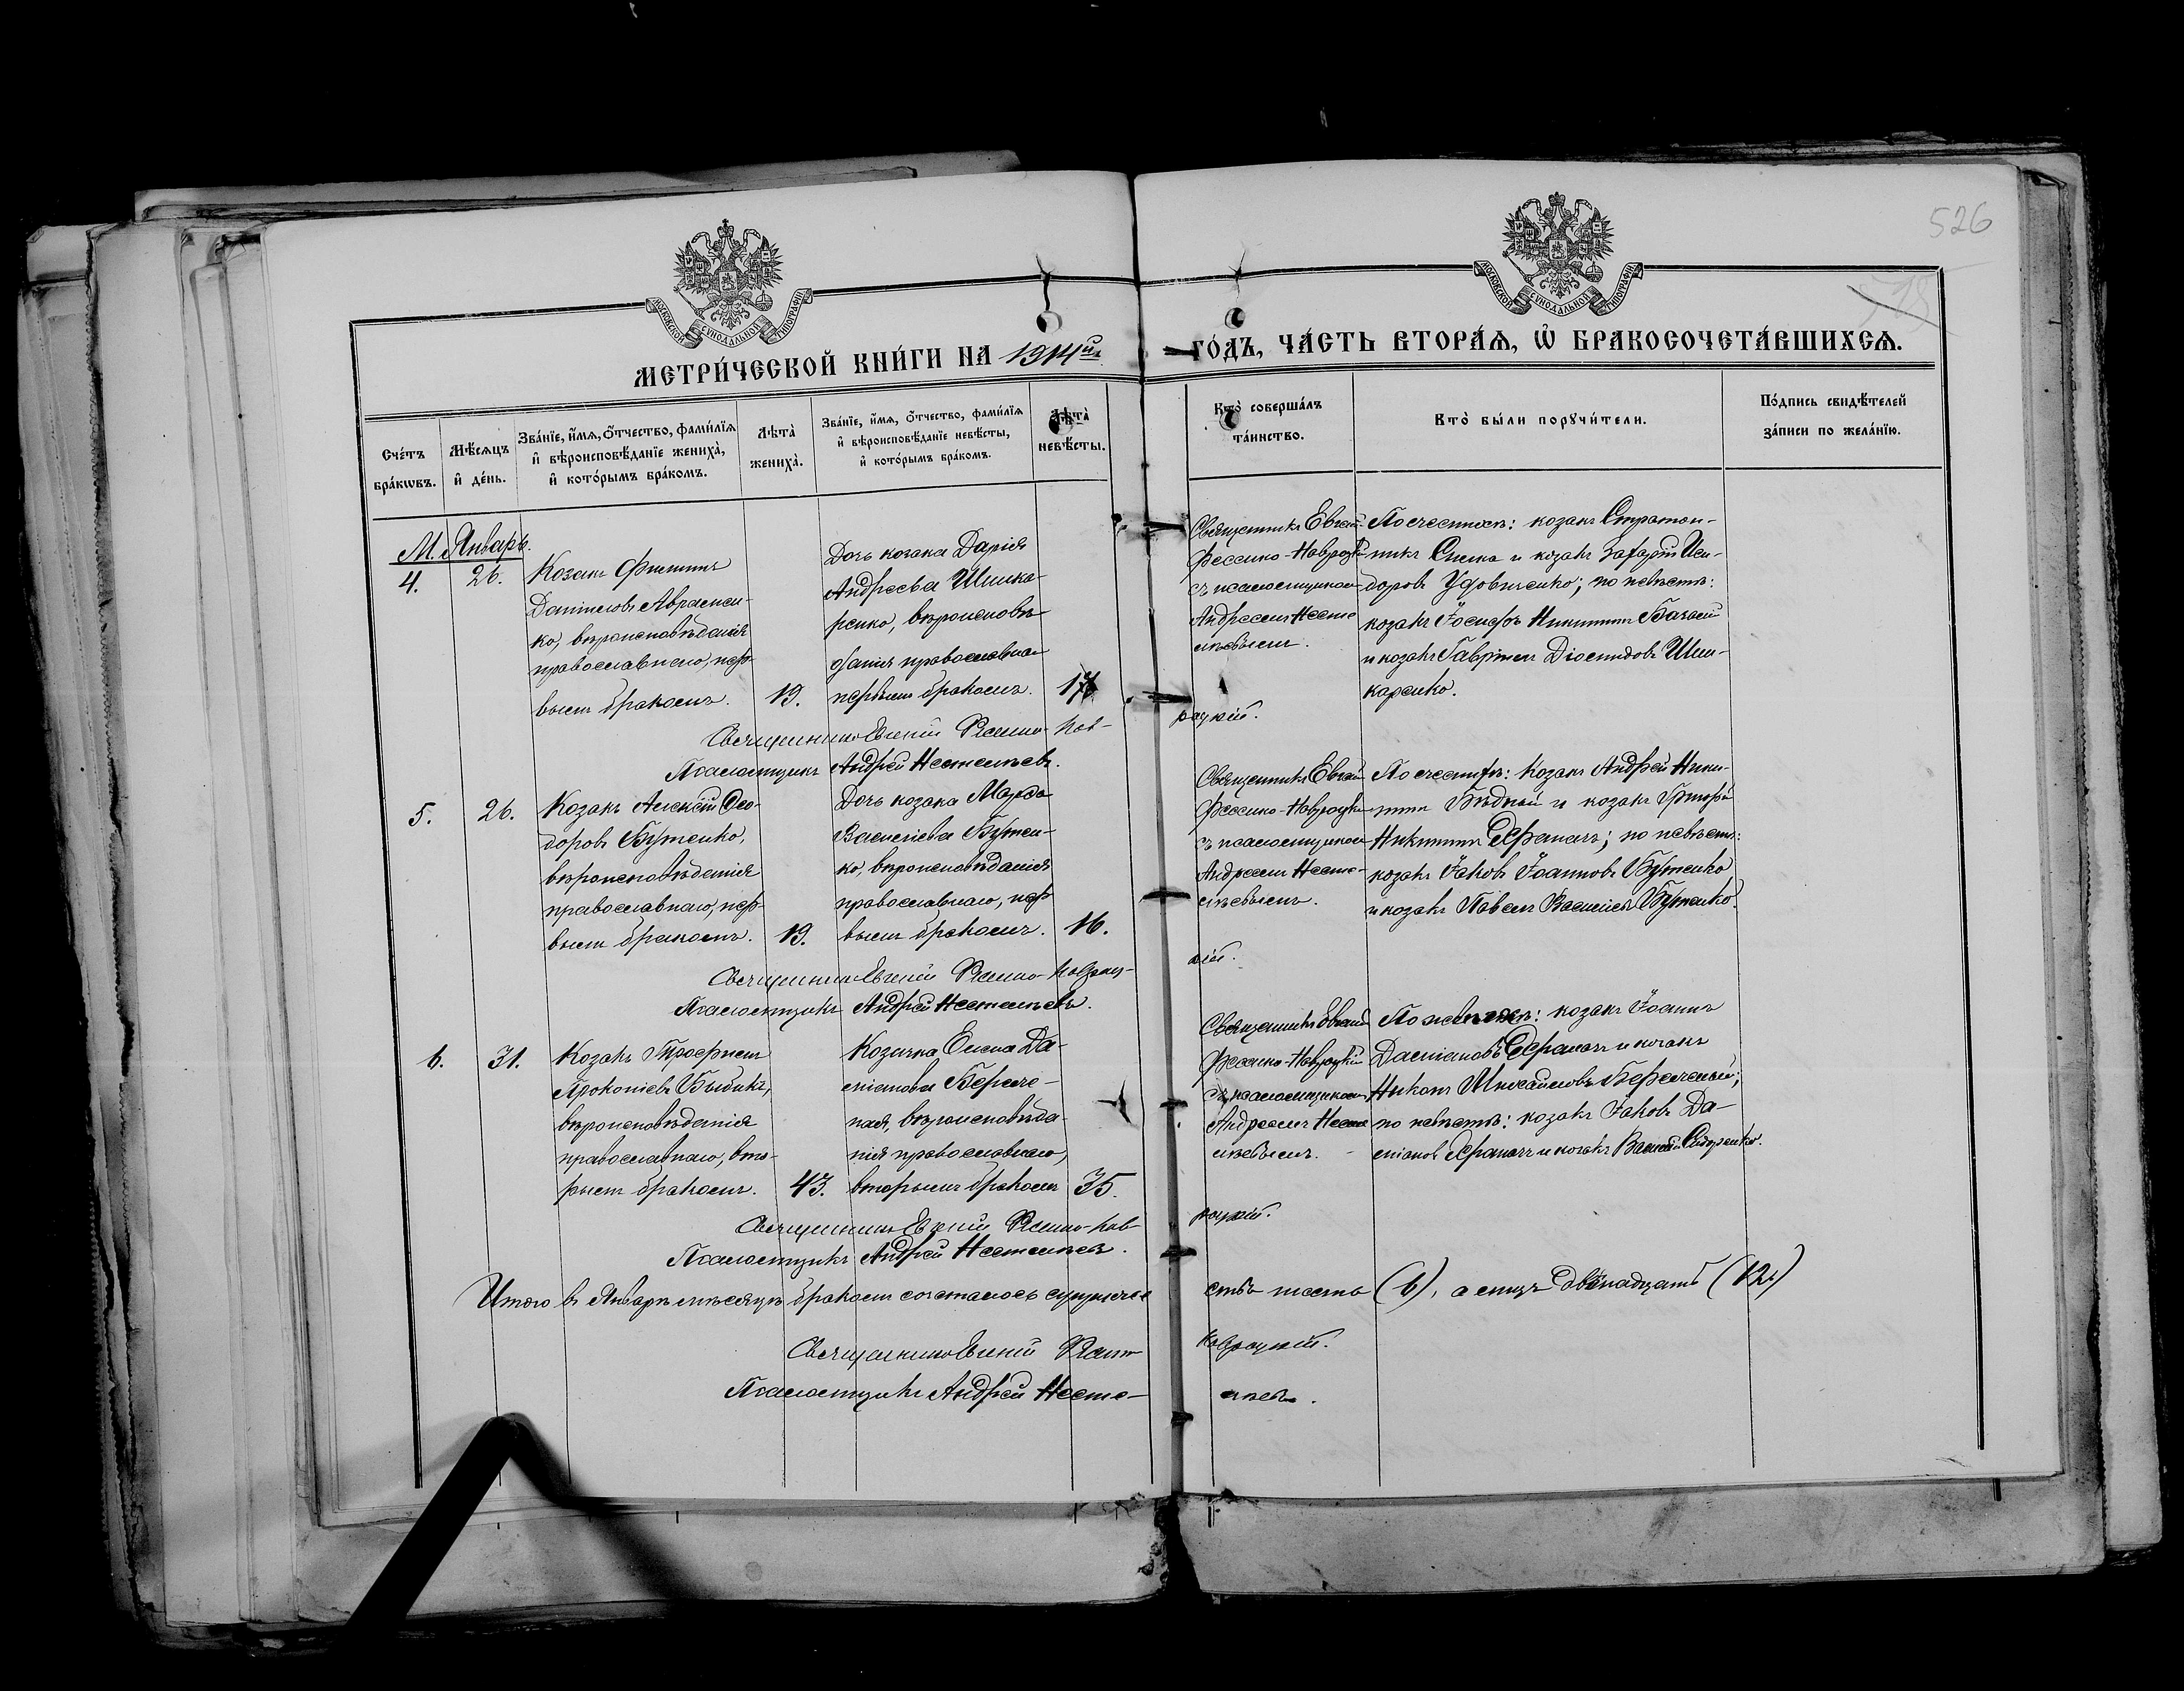 526
МОСКОВСКОЙ СѴНОДАЛЬНОЙ ТИПОГРАФІИ
МОСКОВСКОЙ СѴНОДАЛЬНОЙ ТИПОГРАФІИ
МЕТРИ́ЧЕСКОЙ КНИ́ГИ НА 1914й
ГО́ДЪ, ЧА́СТЬ ВТОРА́Ѧ, Ѡ҆ БРАКОСОЧЕТА́ВШИХСѦ.
Сче́тъ бра́кѡвъ.
Мѣ́сѧцъ и҆ де́нь.
Зва́нїе, и҆́мѧ, ѻ҆́тчество, фами́лїѧ
и҆ вѣроисповѣ́данїе жениха̀,
и҆ кото́рымъ бра́комъ.
Лѣта̀ жениха̀.
Зва́нїе, и҆́мѧ, ѻ҆́тчество, фами́лїѧ
и҆ вѣроисповѣ́данїе невѣ́сты,
и҆ кото́рымъ бра́комъ.
Лѣта̀ невѣ́сты.
Кто̀ соверша́лъ та́инство.
Кто̀ бы́ли порꙋчи́тели.
По́дпись свидѣ́телей за́писи по жела́нїю.
М. Январь.
4. 26.
Козакъ Филиппъ
Даниловъ Авраменко,
вѣроисповѣданія
православнаго, первымъ
бракомъ. 19.
Дочь козака Дарія
Андреева Шинкаренко,
вѣроисповѣданія
православнаго
первымъ бракомъ. 17
Священникъ Евгеній
Фесенко-Навроцкій
съ псаломщикомъ
Андреемъ Нестелѣевымъ.
По женихѣ: козакъ Стратоникъ
и козакъ Захарій Исидоровъ
Удовиченко; по невѣстѣ:
козакъ Іосифъ Никитинъ
и козакъ Гавріилъ Діомидовъ Шинкаренко.
Священникъ Евгеній Фесенко-Навроцкій.
Псаломщикъ Андрей Нестелѣевъ.
5. 26.
Козакъ Алексій Ѳеодоровъ
Бутенко,
вѣроисповѣданія
православнаго, первымъ
бракомъ. 19.
Дочь козака Марѳа
Васильева Бутенко,
вѣроисповѣданія
православнаго, первымъ
бракомъ. 16.
Священникъ Евгеній
Фесенко-Навроцкій
съ псаломщикомъ
Андреемъ Нестелѣевымъ.
По женихѣ: Козакъ Андрей Никитинъ
Бѣдный и козакъ Григорій
Никитинъ; по невѣстѣ:
козакъ Іаковъ Іоанновъ Бутенко
и козакъ Павелъ Васильевъ Бутенко.
Священникъ Евгеній Фесенко-Навроцкій.
Псаломщикъ Андрей Нестелѣевъ.
6. 31.
Козакъ Трофимъ
Прокопіевъ Бибикъ,
вѣроисповѣданія
православнаго, вторымъ
бракомъ. 43.
Козачка Елена Даміанова
вѣроисповѣданія
православнаго,
вторымъ бракомъ 35.
Священникъ Евгеній
Фесенко-Навроцкій
съ псаломщикомъ
Андреемъ Нестелѣевымъ.
По женихѣ: козакъ Іоаннъ
Даміановъ и козакъ
Никонъ Михайловъ
по невѣстѣ: козакъ Іаковъ Даміановъ
и козакъ Василій Сидоренко.
Священникъ Евгеній Фесенко-Навроцкій.
Псаломщикъ Андрей Нестелѣевъ.
Итого въ Январѣ мѣсяцѣ бракомъ сочеталось супружествъ шесть (6), а лицъ двѣнадцать (12)
Священникъ Евгеній Фесенко-Навроцкій.
Псаломщикъ Андрей Нестелѣевъ.